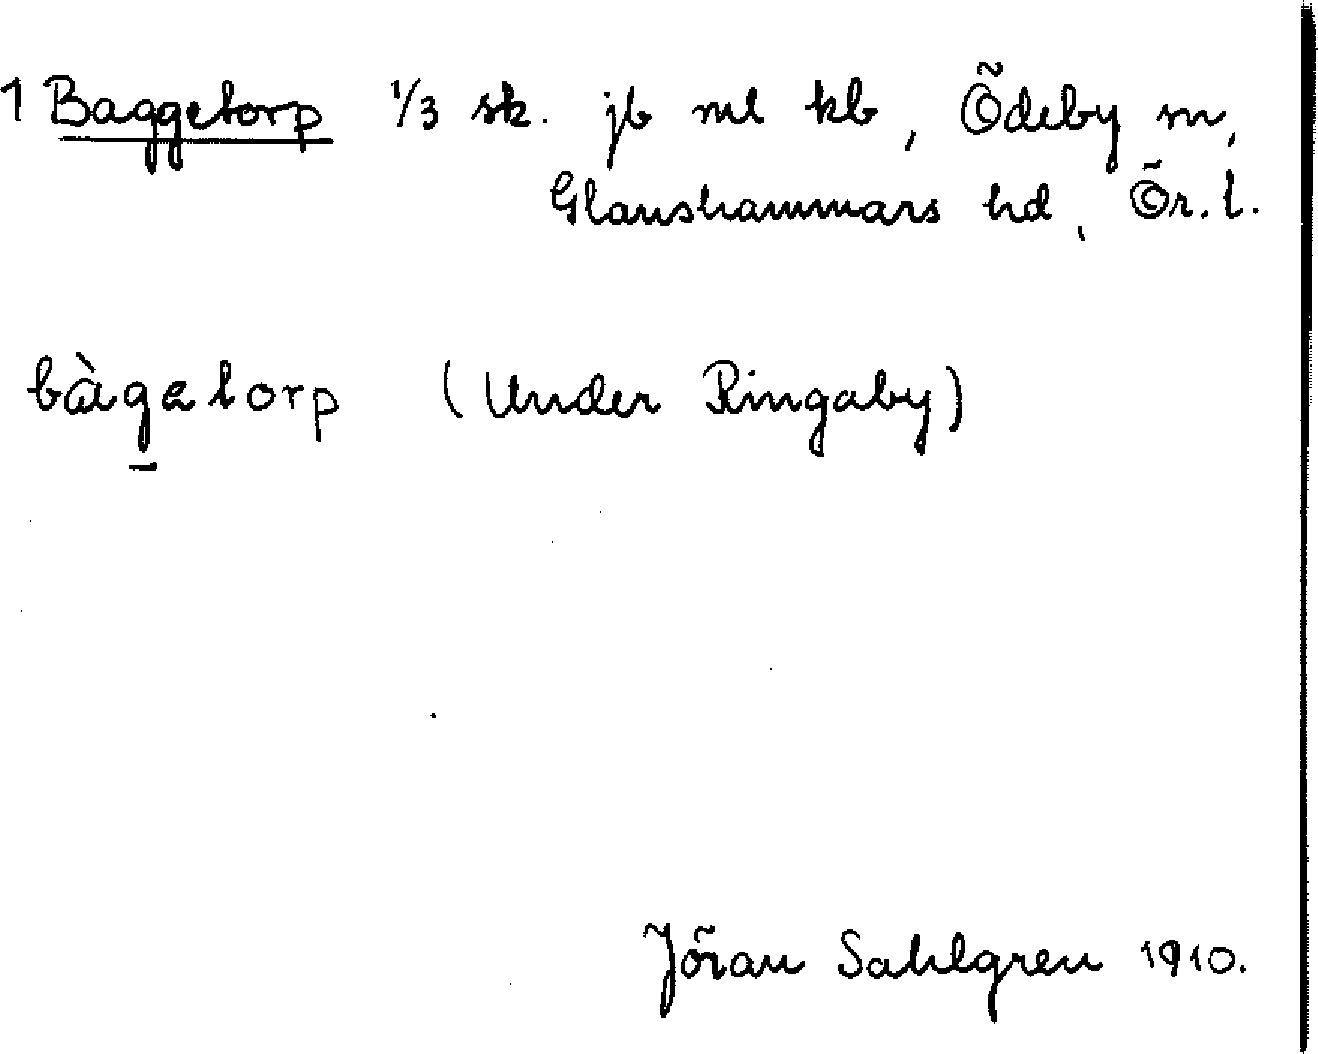 1 Baggetorp 1/3 sk. jb ml kb, Ödeby sn,
Glanshammars hd, Ör. l.
bàgetorp (Under Ringaby)
Jöran Sahlgren 1910.